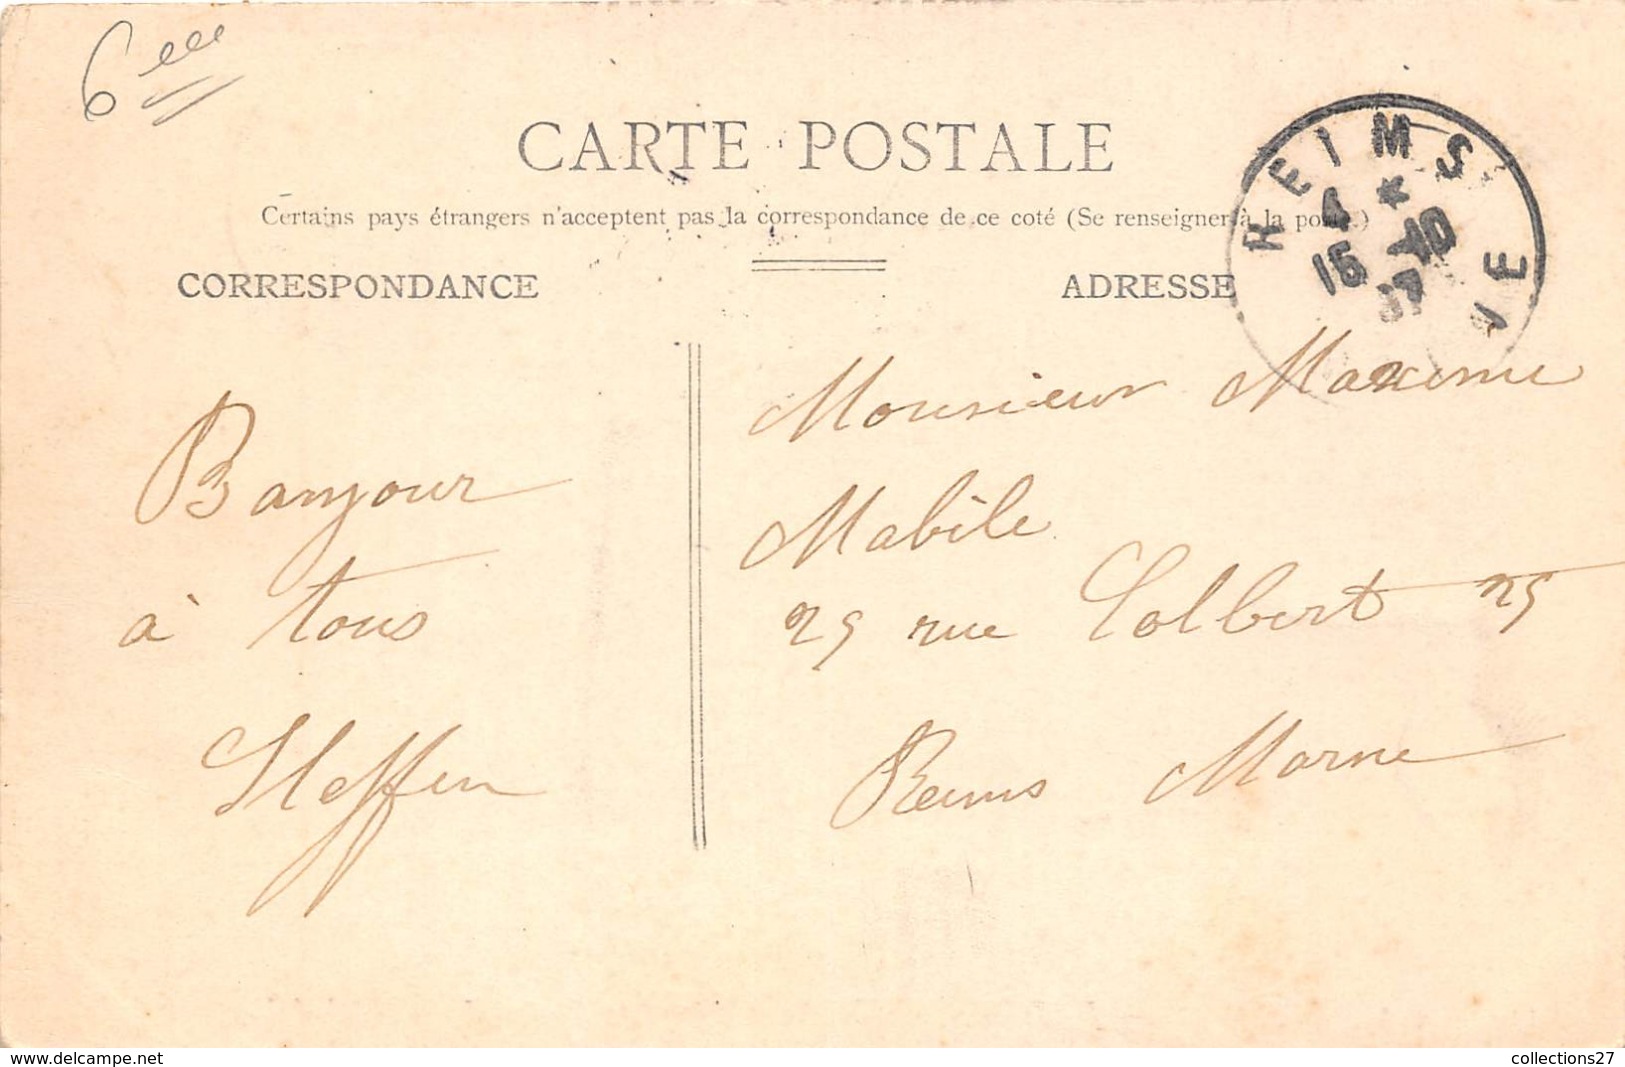 6
CARTE POSTALE
Certains pays étrangers n'acceptent pas la correspondance de ce coté (Se renseigner à la poste.)
CORRESPONDANCE
ADRESSE
REIMS
4 *
15 -10
07
Bonjour
à tous
Steffen
Monsieur Maxime
Mabile
25 rue Colbert 25
Reims Marne
www.delcampe.net
collections27